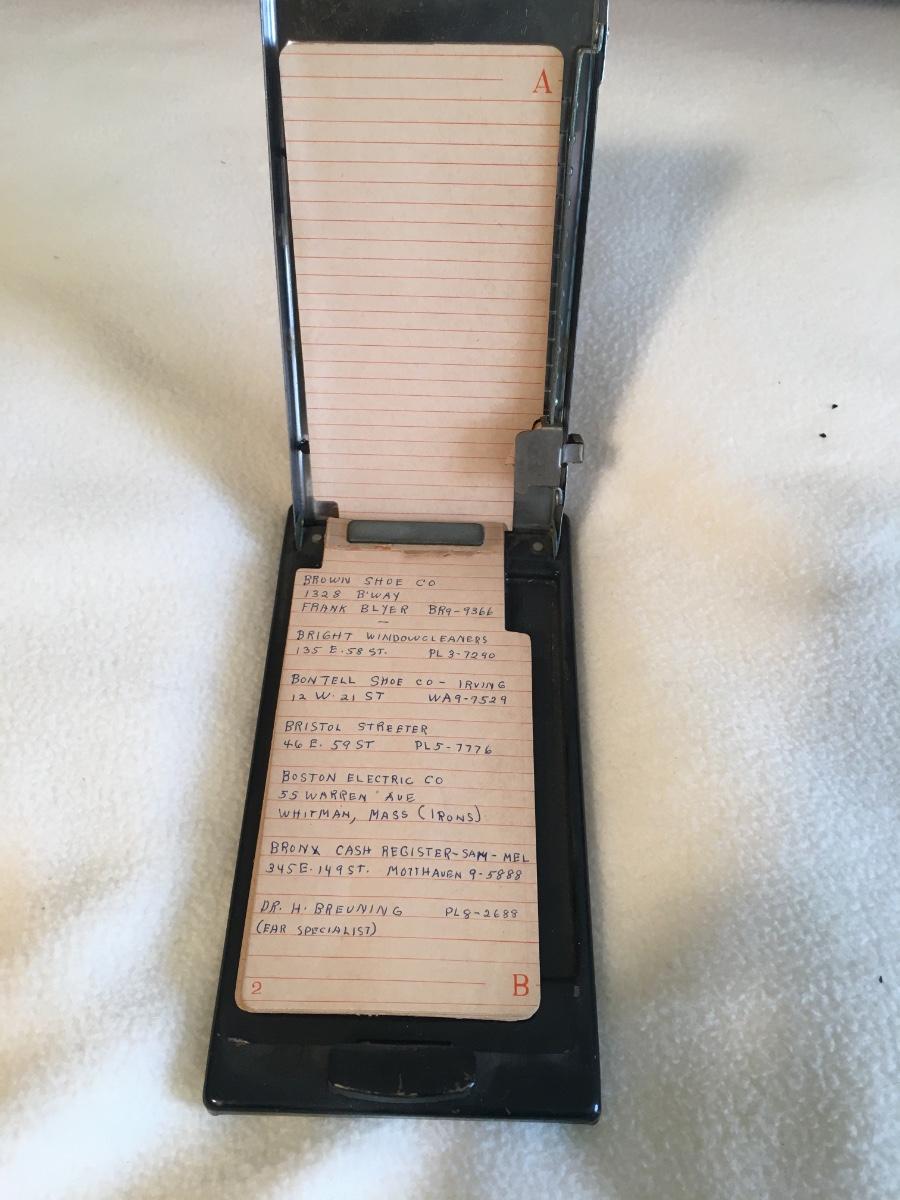 A
BROWN SHOE CO
1328 B'WAY
FRANK BLYER BR9-9366
BRIGHT WINDOWCLEANERS
135 E. 58 ST. PL 3-7290
BONTELL SHOE CO - IRVING
12 W. 21 ST WA9-7529
BRISTOL STREETER
46 E. 59 ST PL5-7776
BOSTON ELECTRIC CO
55 WARREN AVE
WHITMAN, MASS (IRONS)
BRONX CASH REGISTER-SAM-MEL
345 E. 149 ST. MOTTHAVEN 9-5888
DR. H. BREUNING PL8-2688
(EAR SPECIALIST)
2 B